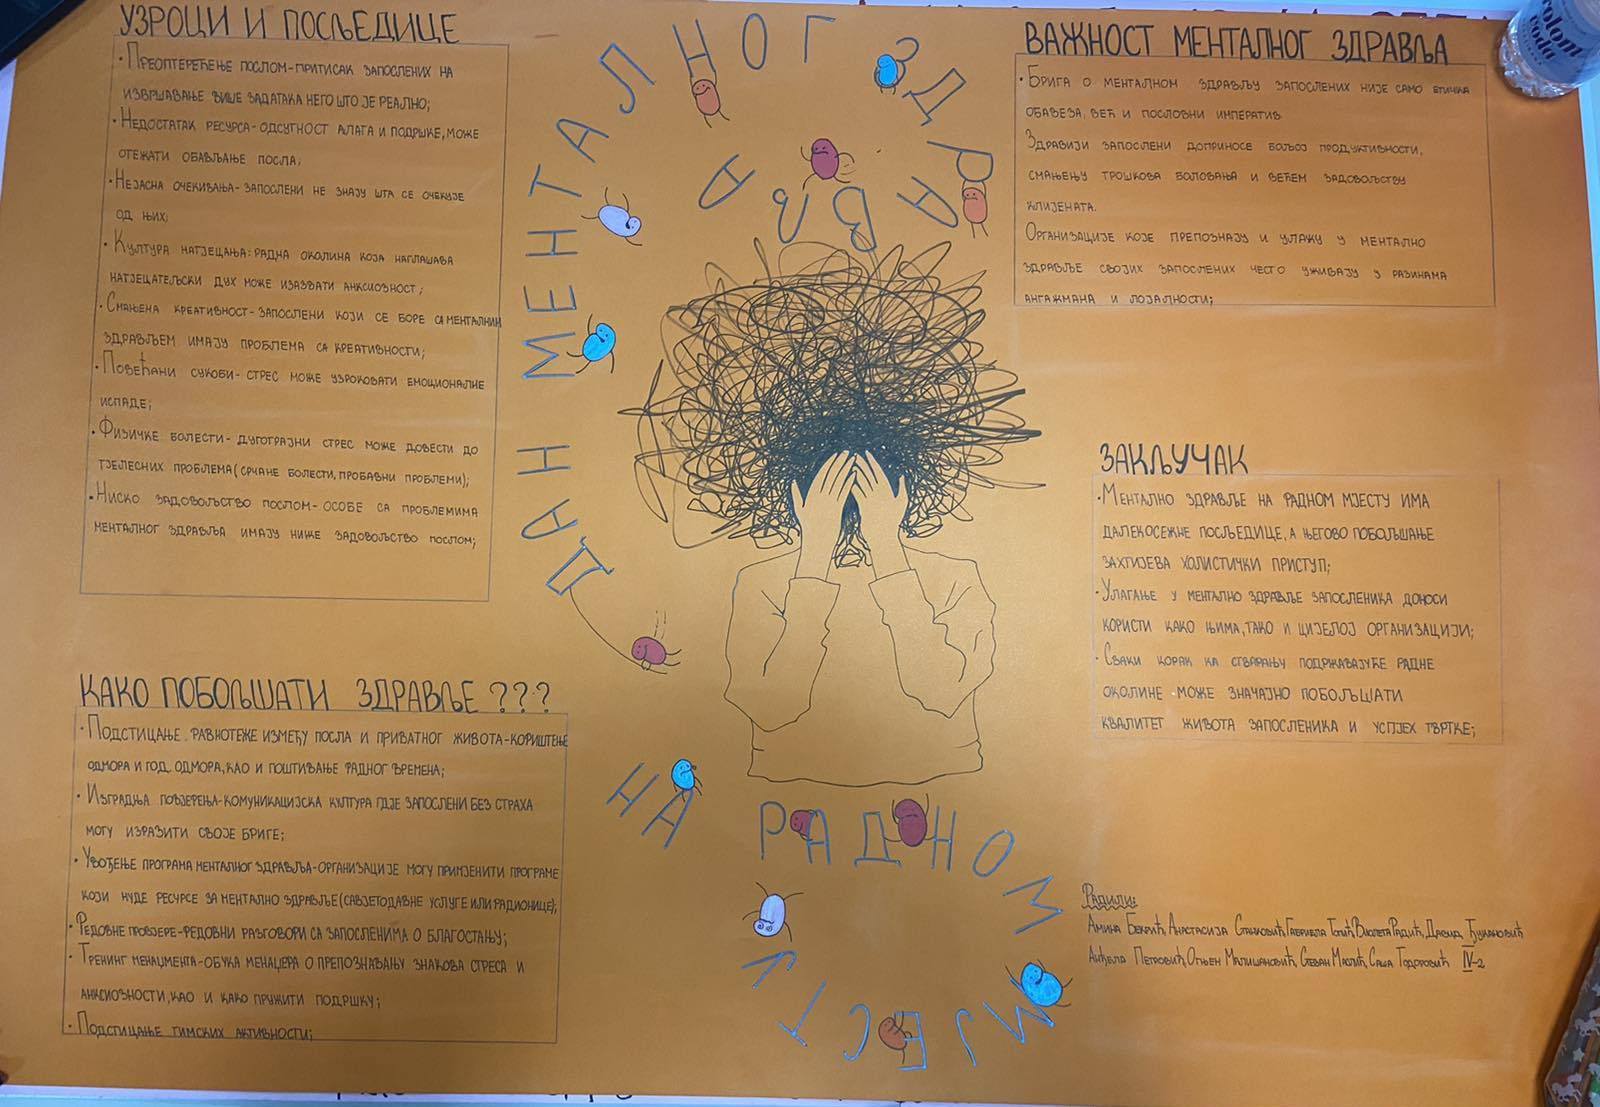 УЗРОЦИ И ПОСЉЕДИЦЕ
· Преоптерећење послом-притисак запослених на
извршавање више задатака него што је реално;
· Недостатак ресурса-одсутност алата и подршке, може
отежати обављање посла;
· Нејасна очекивања-запослени не знају шта се очекује
од њих;
· Култура натјецања: радна околина која наглашава
натјецатељски дух може изазвати анксиозност;
· Смањена креативност-запослени који се боре са менталним
здрављем имају проблема са креативности;
· Повећани сукоби-стрес може узроковати емоционалне
испаде;
· Физичке болести-дуготрајни стрес може довести до
тјелесних проблема (срчане болести, пробавни проблеми);
· Ниско задовољство послом-особе са проблемима
менталног здравља имају ниже задовољство послом;
КАКО ПОБОЉШАТИ ЗДРАВЉЕ ???
· Подстицање равнотеже између посла и приватног живота-кориштење
одмора и год. одмора, као и поштивање радног времена;
· Изградња повјерења-комуникацијска култура гдје запослени без страха
могу изразити своје бриге;
· Увођење програма менталног здравља-организације могу примјенити програме
који нуде ресурсе за ментално здравље (савјетодавне услуге или радионице);
· Редовне провјере-редовни разговори са запосленима о благостању;
· Тренинг менаџмента-обука менаџера о препознавању знакова стреса и
анксиозности, као и како пружити подршку;
· Подстицање тимских активности;
ДАН МЕНТАЛНОГ ЗДРАВЗА
НА РАДНОМ МЈЕСТУ
ВАЖНОСТ МЕНТАЛНОГ ЗДРАВЉА
· Брига о менталном здрављу запослених није само етичка
обавеза, већ и пословни императив.
Здравији запослени доприносе бољој продуктивности,
смањењу трошкова боловања и већем задовољству
клијената.
Организације које препознају и улажу у ментално
здравље својих запослених често уживају у разинама
ангажмана и лојалности;
ЗАКЉУЧАК
· Ментално здравље на радном мјесту има
далекосежне посљедице, а његово побољшање
захтијева холистички приступ;
· Улагање у ментално здравље запосленика доноси
користи како њима, тако и цијелој организацији;
· Сваки корак ка стварању подржавајуће радне
околине може значајно побољшати
квалитет живота запосленика и успјех твртке;
Радили:
Амина Бекрић, Анастасија Станковић, Габриела Виолета Радић, Давид Ђукановић
Анђела Петровић, Огњен Малишановић, Стеван Саша Тодоровић IV-2